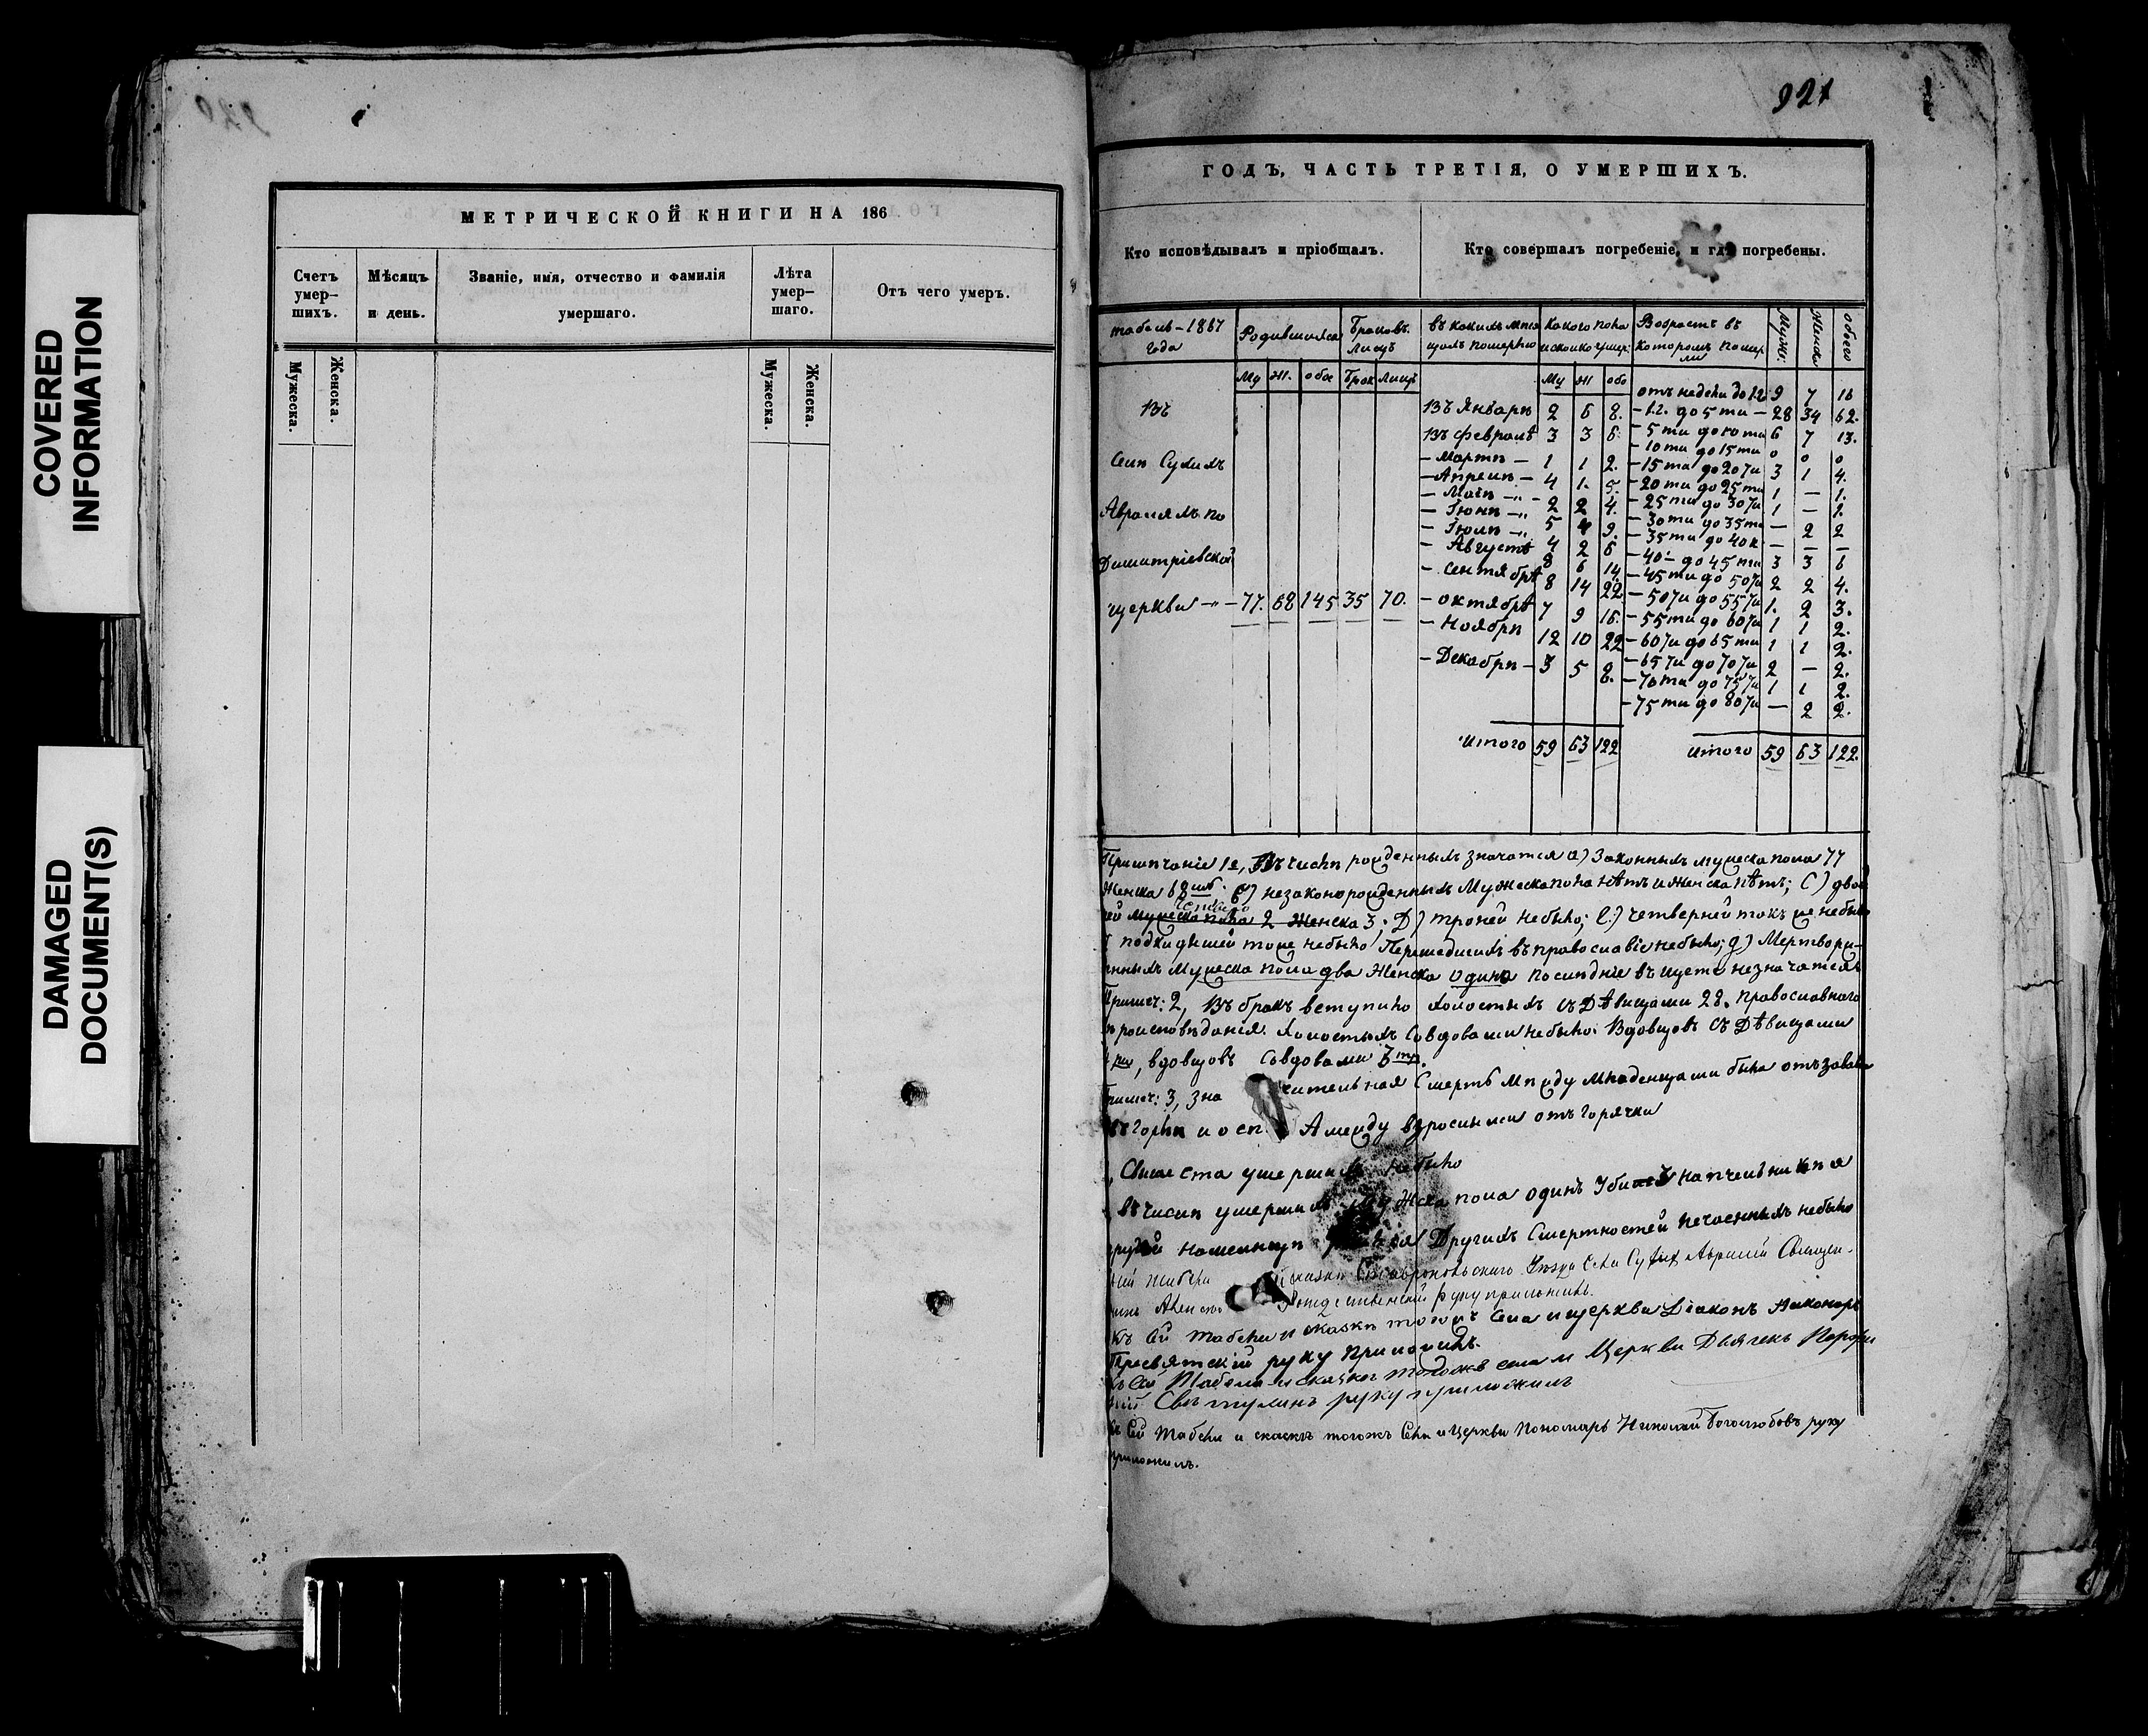 COVERED
INFORMATION
DAMAGED
DOCUMENT(S)
МЕТРИЧЕСКОЙ КНИГИ НА 186
Счетъ умер-шихъ.
Мѣсяцъ и день.
Званіе, имя, отчество и фамилія умершаго.
Лѣта умер-шаго.
Отъ чего умеръ.
Мужеска.
Женска.
Мужеска.
Женска.
921
ГОДЪ, ЧАСТЬ ТРЕТІЯ, О УМЕРШИХЪ.
Кто исповѣдывалъ и пріобщалъ.
Кто совершалъ погребеніе, и гдѣ погребены.
табель - 1867 года
Родившихся
Браковъ. Лицъ
Какого пола и сколко умер:
Возрастъ въ которомъ померли
Муж:
Женска
обоего
Му Ж. обое Брак Лицъ
Му Ж обо
Въ
Селѣ Сухихъ
Авраляхъ по
Димитріевской
церкви - 77. 68 145 35 70.
Въ Январѣ 2 6 8.
Въ Февралѣ 3 3 6.
- Мартѣ - 1 1 2.
- Апрелѣ - 4 1. 5.
- Маѣ - 2 2 4.
- Іюнѣ - 5 4 9.
- Іюлѣ - 4 2 6
- Августѣ 8 6 14.
- сентябрѣ 8 14 22.
- октябрѣ 7 9 16.
- Ноябрѣ 12 10 22
- Декабрѣ - 3 5 8.
Итого 59 63 122
отъ недели до 1.2 9 7 16
- 1.2. до 5 ти - 28 34 62.
- 5 ти до 10 ти 6 7 13.
- 10 ти до 15 ти 0 0 0
- 15 ти до 20 ти 3 1 4.
- 20 ти до 25 ти 1 - 1.
- 25 ти до 30 ти 1 - 1.
- 30 ти до 35 ти - 2 2
- 35 ти до 40 - - -
- 40 - до 45 ти 3 3 6
- 45 ти до 50 ти 2 2 4.
- 50 ти до 55 ти 1. 2 3.
- 55 ти до 60 ти 1 1 2.
- 60 ти до 65 ти 1 1 2.
- 65 ти до 70 ти 2 - 2.
- 70 ти до 75 ти 1 1 2.
- 75 ти до 80 ти - 2 2.
итого 59 63 122.
Примѣчаніе 1е, Въ числѣ рожденныхъ значатся а) Законныхъ мужеска пола 77
Женска 68 незаконорожденныхъ Мужеска пола нѣтъ и женска нѣтъ; С) двой
ней мужеска пола 2 Женска 3; D) троней небыло; е.) четверней такъ же небыло
подкидышей тоже небыло Перешедшихъ въ православіе небыло; g) Мертворж-
нныхъ Мужеска пола два Женска одина последніе въ щетъ незначатся
Примеч: 2, Въ бракъ вступило холостыхъ съ Дѣвицами 28. православнаго
вѣроисповѣданія. Холостыхъ Совдовами небыло. Вдовцовъ съ Дѣвицами
вдовцовъ Совдовами 3
Примеч: 3, зна чительная Смерть между младенцами была отъ
въ Горлѣ и А между взрослыми отъ горячки
умершихъ небыло
въ числѣ умершихъ мужска пола одинъ Убитъ
другой Другихъ Смертностей нечаенныхъ небыло
Ставропольскаго Уезда Села Сухихъ Авралей Священ-
Рождественскій руку приложилъ.
Къ сей табели и сказкѣ тогожъ Села и церкви Діаконъ Никаноръ
руку Приложилъ.
Къ сей Табели и сказке тогожъ села и Церкви Дьячекъ
руку приложилъ
Къ Сей табели и сказкѣ тогожъ Села и Церкви Пономарь Николай Боголюбовъ руку
приложилъ.